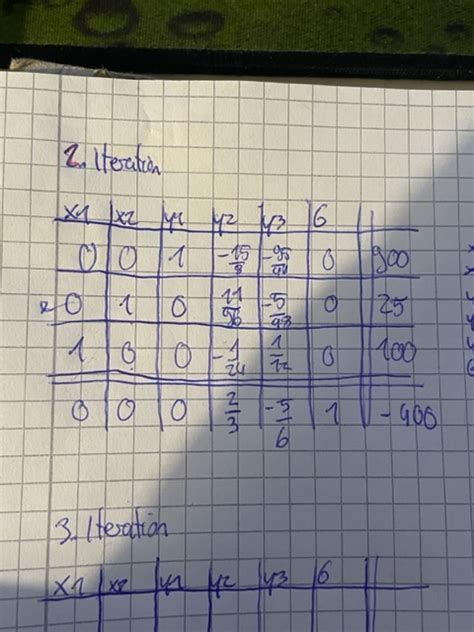 2. Iteration
x1 x2 y1 y2 y3 6
0 0 1 -15/8 0 900
0 1 0 0 25
1 0 0 -1/24 1/12 0 100
0 0 0 2/3 -5/6 1 -400
3. Iteration
x1 x2 y1 y2 y3 6